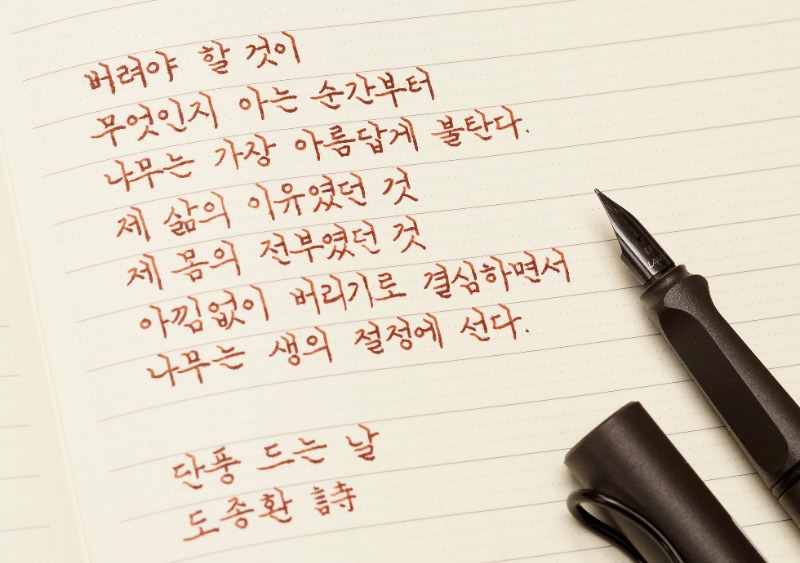 버려야 할 것이
무엇인지 아는 순간부터
나무는 가장 아름답게 불탄다.
제 삶의 이유였던 것
제 몸의 전부였던 것
아낌없이 버리기로 결심하면서
나무는 생의 절정에 선다.
단풍 드는 날
도종환 詩